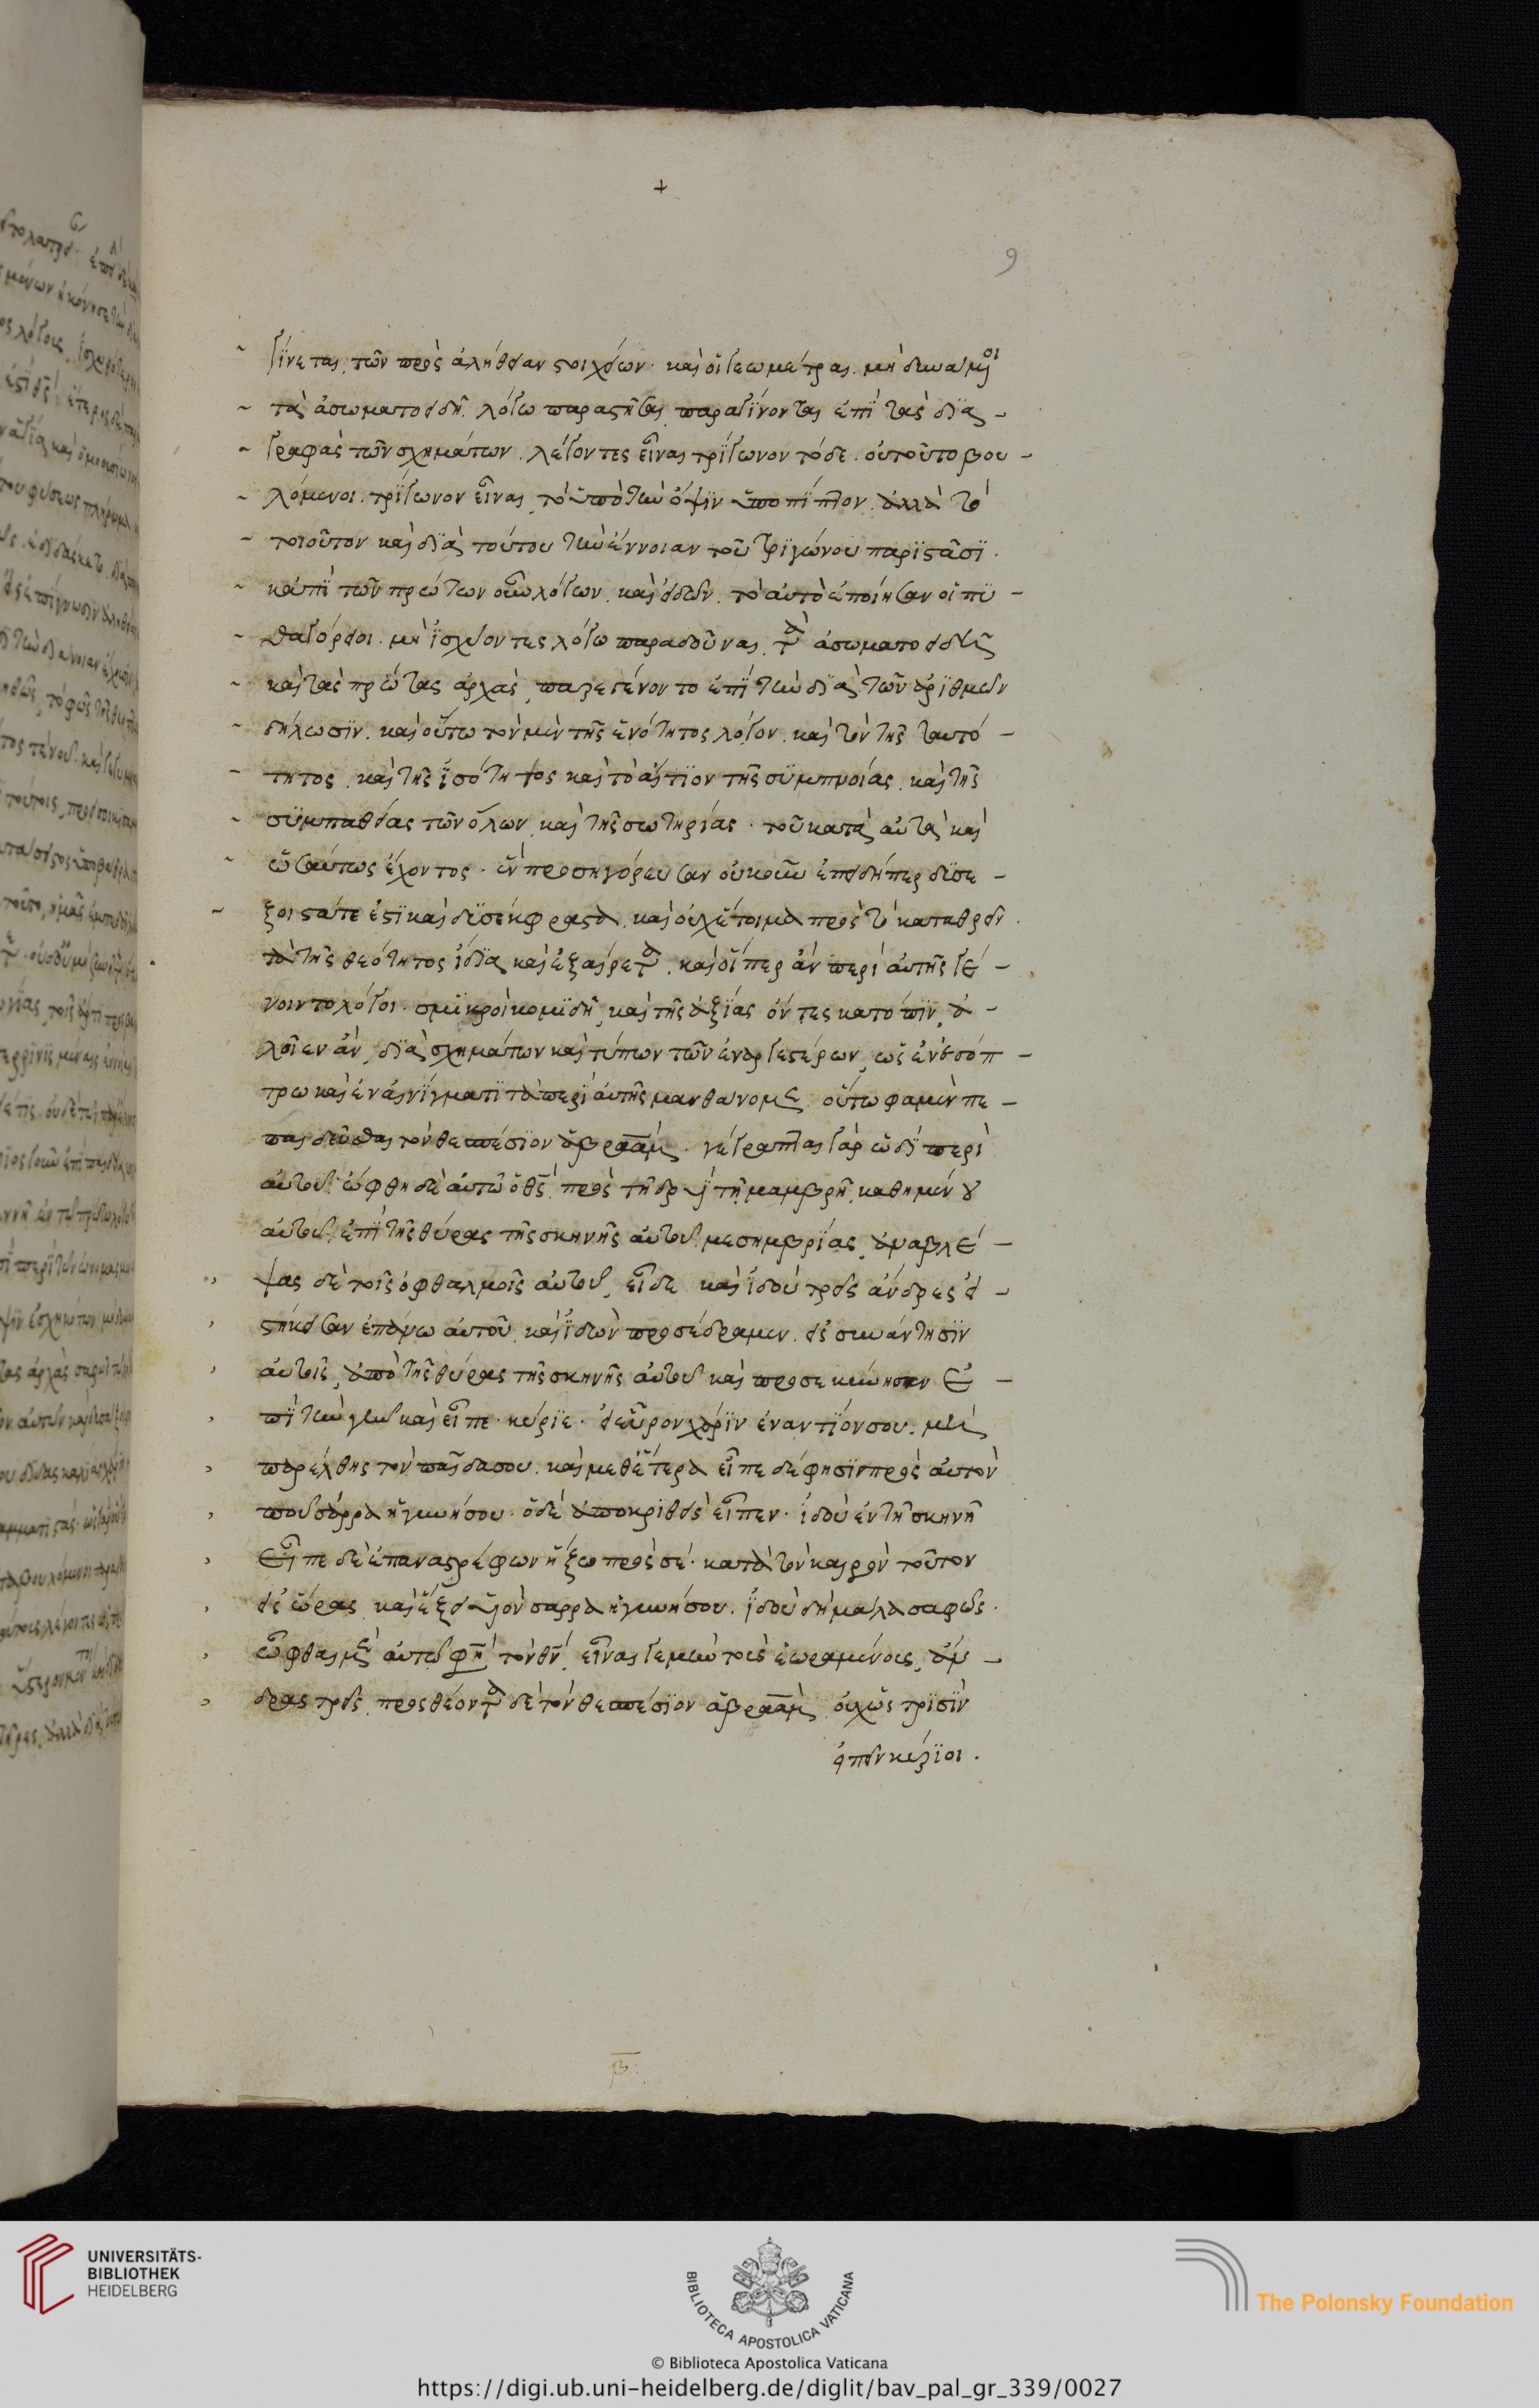 +
9
γίνεται τῶν πρὸς ἀλήθειαν στοιχείων. καὶ οἱ γεωμέτραι μὴ δυνάμενοι
τὰ ἀσωματοειδῆ λόγω παραστῆσαι παραγίνονται ἐπὶ τὰς δια-
γραφὰς τῶν σχημάτων. λέγοντες εἶναι τρίγωνον τόδε. οὐ τοῦτο βου-
λόμενοι τρίγωνον εἶναι τὸ ὑπὸ τὴν ὄψιν ὑποπίπτον. ἀλλὰ τὸ
τοιοῦτον καὶ διὰ τούτου τὴν ἔννοιαν τοῦ τριγώνου παριστᾶσι.
κἀπὶ τῶν πρώτων οὖν λόγων καὶ εἰδῶν. τὸ αὐτὸ ἐποίησαν οἱ πυ-
θαγόρειοι. μὴ ἰσχύοντες λόγω παραδοῦναι τὰ ἀσωματοειδῆ
καὶ τὰς πρώτας ἀρχὰς παρεγένοντο ἐπὶ τὴν διὰ τῶν ἀριθμῶν
δήλωσιν. καὶ οὕτω τὸν μὲν τῆς ἑνότητος λόγον καὶ τὸν τῆς ταυτό-
τητος καὶ τῆς ἰσότητος καὶ τὸ αἴτιον τῆς συμπνοίας καὶ τῆς
συμπαθείας τῶν ὅλων καὶ τῆς σωτηρίας. τοῦ κατὰ αὐτὰ καὶ
ὡσαύτως ἔχοντος. ἓν προσηγόρευσαν οὐκοῦν ἐπειδήπερ δυσέ-
ξοιστά τέ ἐστι καὶ δυσέκφραστα. καὶ οὐχ ἕτοιμα πρὸς τὸ καταθρεῖν
τὰ τῆς θεότητος ἴδια καὶ ἐξαίρετα. καὶ οἵπερ ἂν περὶ αὐτῆς γέ-
νοιντο λόγοι. σμικροὶ κομιδῆ καὶ τῆς ἀξίας ὄντες κατόπιν ἁ-
λοῖεν ἄν διὰ σχημάτων καὶ τύπων τῶν ἐναργεστέρων ὡς ἐν ἐσόπ-
τρω καὶ ἐν αἰνίγματι τὰ περὶ αὐτῆς μανθάνομεν οὕτω φαμὲν πε-
παιδεῦσθαι τὸν θεσπέσιον ἀβραάμ. γέγραπται γὰρ ὡδὶ περὶ
αὐτοῦ ὤφθη δὲ αὐτῶ ὁ θς πρὸς τῆ δρυὶ τῆ μαμβρῆ καθημένου
αὐτοῦ ἐπὶ τῆς θύρας τῆς σκηνῆς αὐτοῦ μεσημβρίας ἀναβλέ-
ψας δὲ τοῖς ὀφθαλμοῖς αὐτοῦ εἶδε καὶ ἰδοὺ τρεῖς ἄνδρες εἱ-
στήκεισαν ἐπάνω αὐτοῦ καὶ ἰδὼν προσέδραμεν εἰς συνάντησιν
αὐτοῖς ἀπὸ τῆς θύρας τῆς σκηνῆς αὐτοῦ καὶ προσεκύνησεν ἐ-
πὶ τὴν γῆν καὶ εἶπε. κύριε. εἰ εὗρον χάριν ἐναντίον σου. μὴ
παρέλθης τὸν παῖδά σου. καὶ μεθέτερα εἶπε δέ φησιν πρὸς αὐτὸν
ποῦ σάρρα ἡ γυνή σου. ὁ δὲ ἀποκριθεὶς εἶπεν. ἰδοὺ ἐν τῆ σκηνῆ
εἶπε δὲ ἐπαναστρέφων ἥξω πρὸς σέ. κατὰ τὸν καιρὸν τοῦτον
εἰς ὥρας καὶ ἕξει υἱὸν σάρρα ἡ γυνή σου. ἰδοὺ δὴ μάλα σαφῶς.
ὦφθαι μὲν αὐτῶ φησὶ τὸν θν εἶναι γε μὴν τοὺς ἑωραμένους ἄν-
δρας τρεῖς προσθέοντα δὲ τὸν θεσπέσιον ἀβραὰμ οὐχ ὡς τρισὶν
εἰπεῖν κύριοι.
β
UNIVERSITÄTS-
BIBLIOTHEK
HEIDELBERG
BIBLIOTECA APOSTOLICA VATICANA
The Polonsky Foundation
© Biblioteca Apostolica Vaticana
https://digi.ub.uni-heidelberg.de/diglit/bav_pal_gr_339/0027